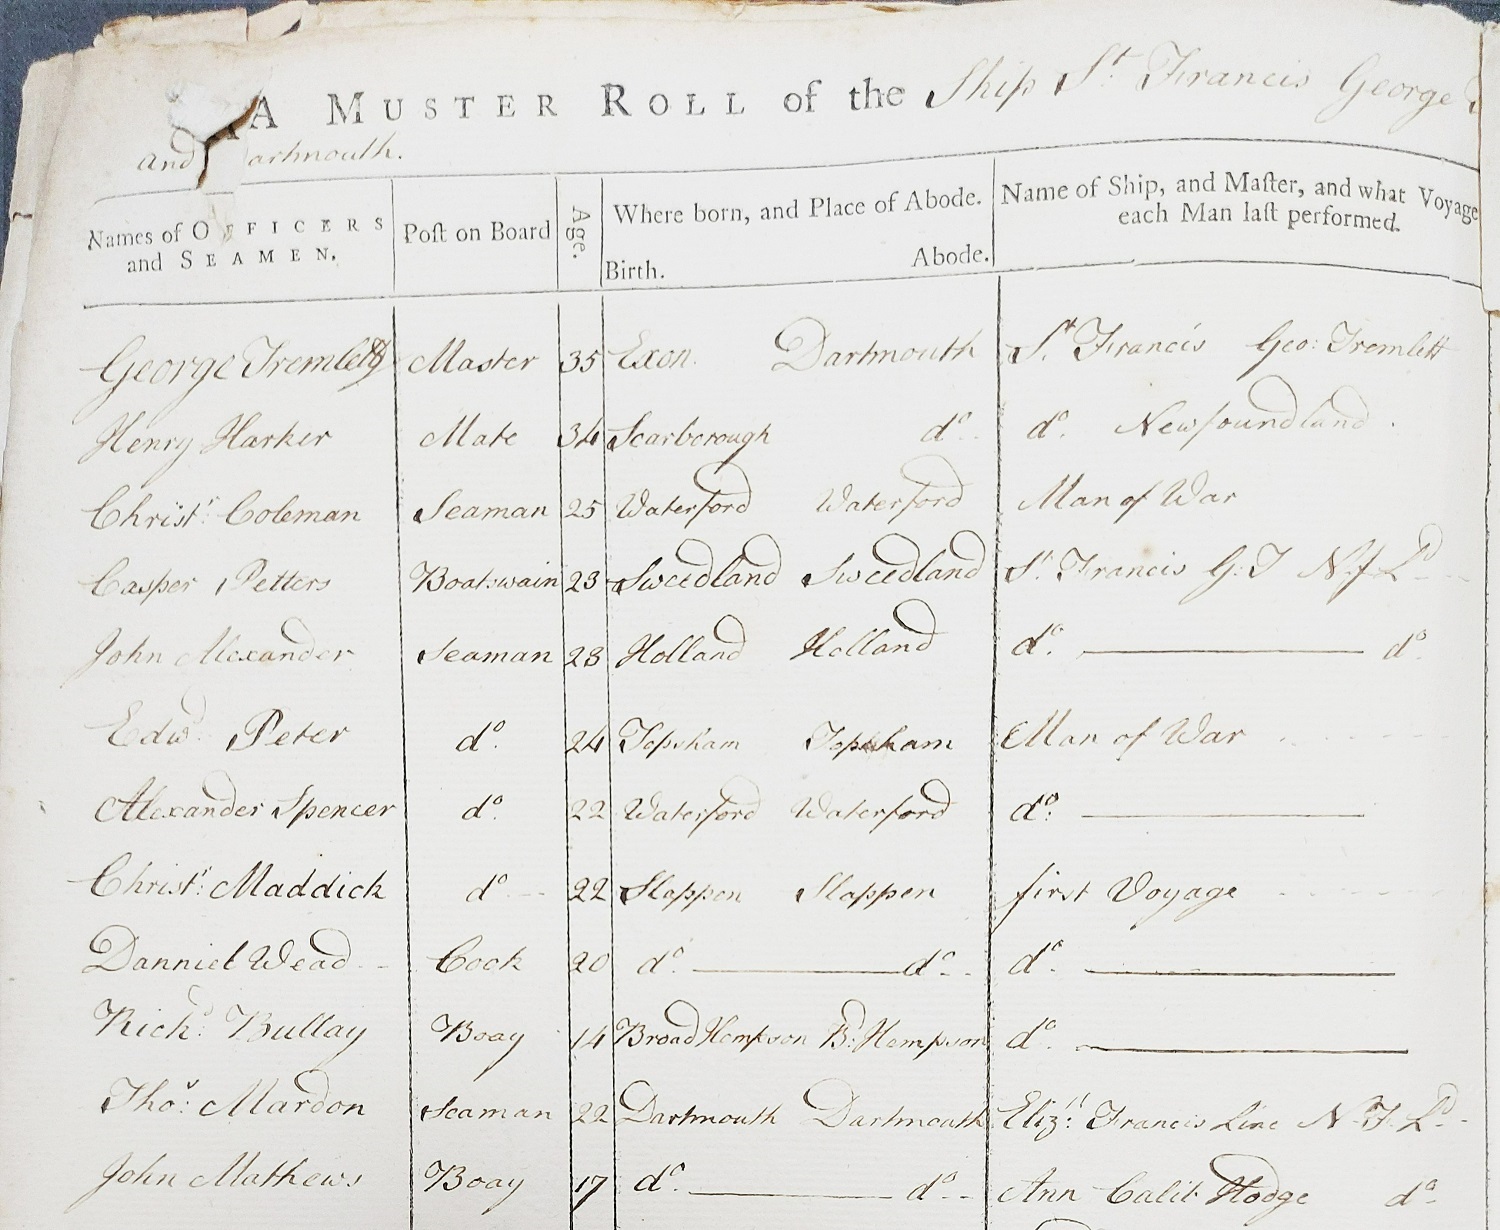 A MUSTER ROLL of the Ship St. Francis George
and artmouth.
Names of OFFICERS and SEAMEN.
Post on Board
Age.
Where born, and Place of Abode.
Birth. Abode.
Name of Ship, and Master, and what Voyage
each Man last performed.
George Tremlett Master 35 Exon. Dartmouth St. Francis Geo: Tremlett
Henry Harker Mate 34 Scarborough do. do. Newfoundland.
Christr. Coleman Seaman 25 Waterford Waterford Man of War
Casper Petters Boatswain 23 Sweedland Sweedland St. Francis G:T N.f Ld
John Alexander Seaman 23 Holland Holland do. do.
Edwd. Peter do. 24 Topsham Topsham Man of War
Alexander Spencer do. 22 Waterford Waterford do.
Christr. Maddick do 22 Slappen Slappen first Voyage
Danniel Wead Cook 20 do. do. do.
Richd. Bullay Boay 14 Broad Hempson Bd: Hempson do.
Thos. Mardon Seaman 22 Dartmouth Dartmouth Elizth. Francis Line N.F. Ld
John Mathews Boay 17 do. do. Ann Calib Hodge do.